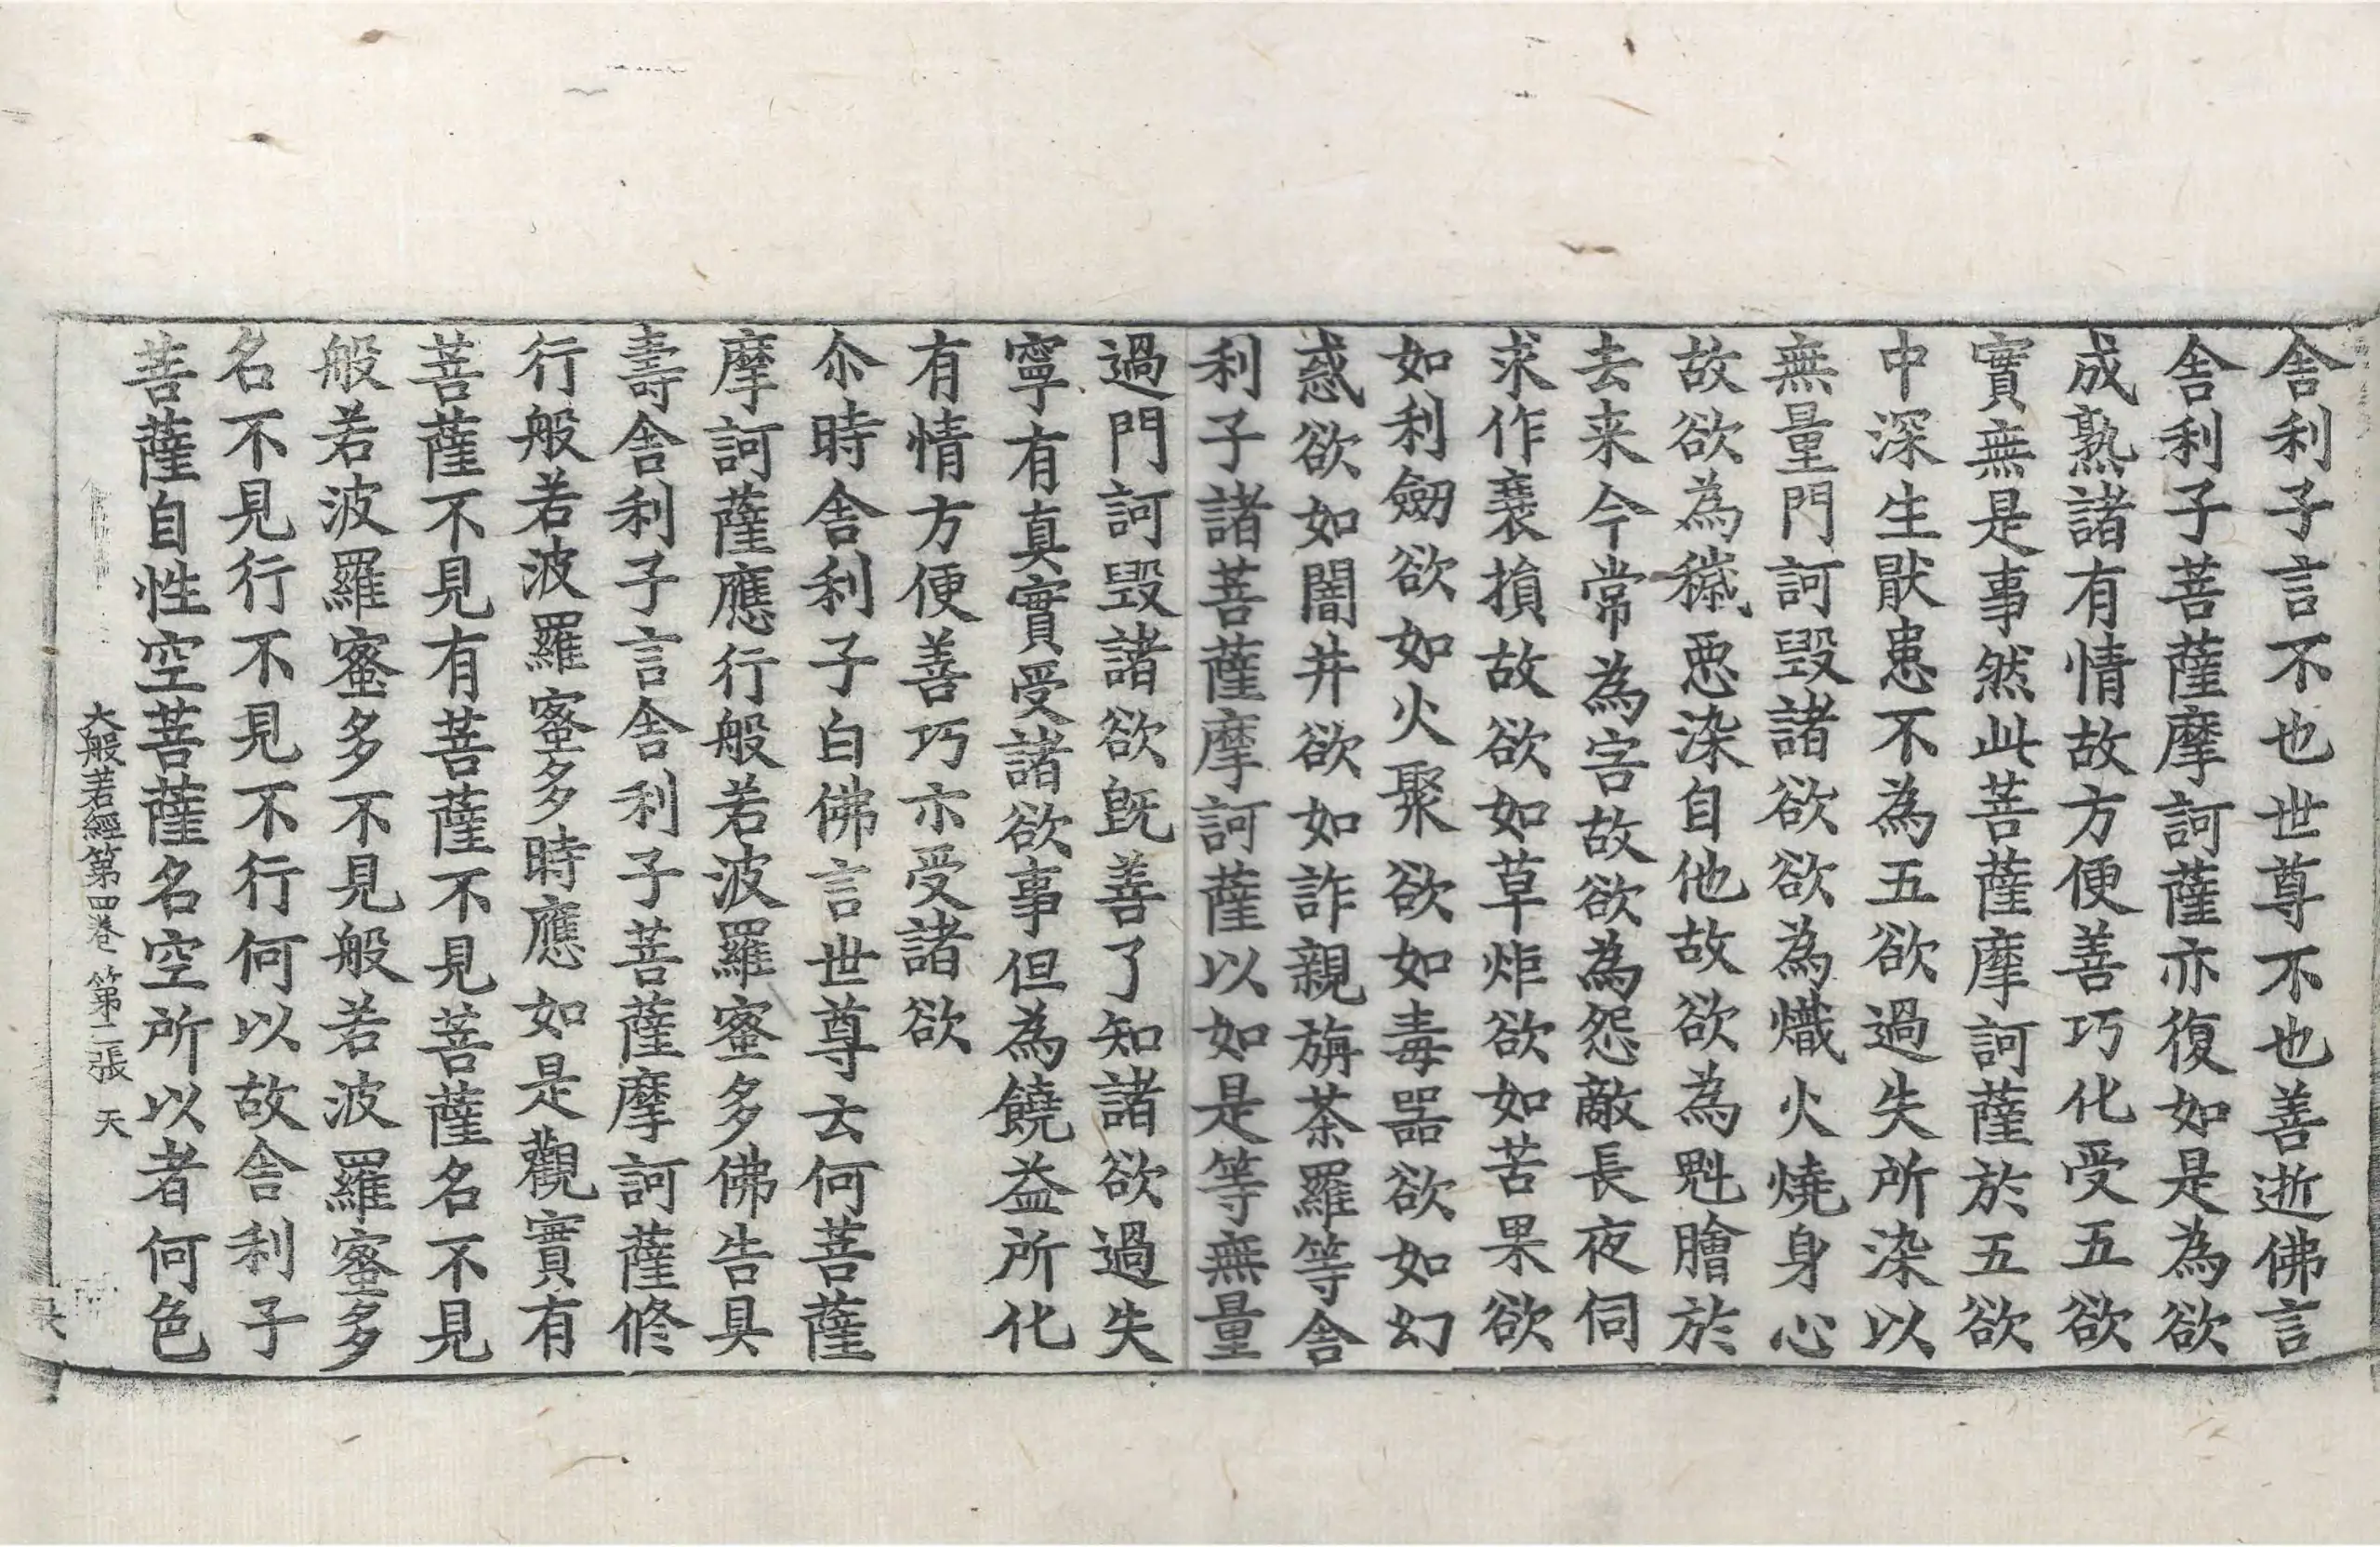 舎利子言不也世尊不也善逝佛言
舎利子菩薩摩訶薩亦復如是為欲
成熟諸有情故方便善巧化受五欲
實無是事然此菩薩摩訶薩於五欲
中深生猒患不為五欲過失所染以
無量門訶毀諸欲欲為熾火燒身心
故欲為穢惡染自他故欲為魁膾於
去来今常為害故欲為怨敵長夜伺
求作衰損故欲如草炬欲如苦果欲
如利劒欲如火聚欲如毒器欲如幻
惑欲如闇井欲如詐親旃荼羅等舎
利子諸菩薩摩訶薩以如是等無量
過門訶毀諸欲旣善了知諸欲過失
寧有真實受諸欲事但為饒益所化
有情方便善巧亦受諸欲
尒時舎利子白佛言世尊云何菩薩
摩訶薩應行般若波羅蜜多佛告具
壽舎利子言舎利子菩薩摩訶薩修
行般若波羅蜜多時應如是觀實有
菩薩不見有菩薩不見菩薩名不見
般若波羅蜜多不見般若波羅蜜多
名不見行不見不行何以故舎利子
菩薩自性空菩薩名空所以者何色
大般若經第四卷 第二張 天